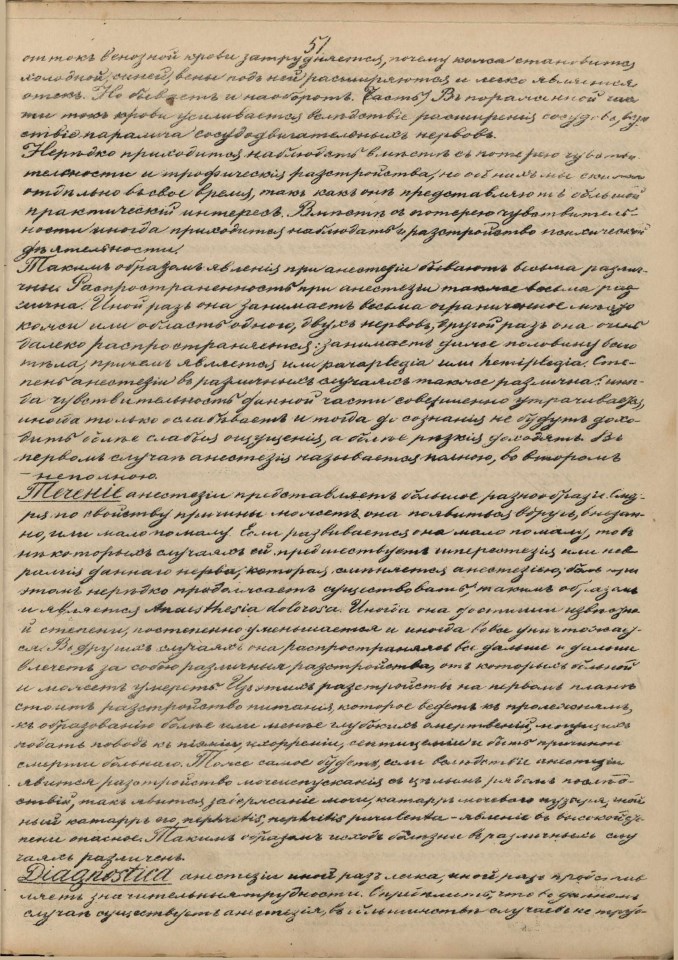 51
отток венозной крови затрудняется, почему кожа становится
холодной, синей, вены подъ ней расширяются и легко является
отекъ. Но бываетъ и наоборотъ. Въ пораженной час-
ти токъ крови усиливается вслѣдствіе расширенія сосудовъ, вслѣ
ствіе паралича сосудодвигательныхъ нервовъ.
Нерѣдко приходится наблюдать вмѣстѣ съ потерею чувстви-
тельности и трофическія разстройства, но объ нихъ мы скажемъ
отдѣльно въ свое время, такъ какъ онѣ представляютъ большой
практическій интересъ. Вмѣстѣ съ потерею чувствитель-
ности иногда приходится наблюдать разстройство психической
дѣятельности.
Такимъ образомъ явленія при анестезіи бываютъ весьма различ-
ны. Распространенность при анестезіи также весьма раз
лична. Иной разъ она занимаетъ весьма ограниченное мѣсто
кожи или область одного, двухъ нервовъ, другой разъ она очень
далеко распространяется: занимаетъ цѣлую половину всего
тѣла, причемъ является или paraplegia или hemiplegia. Сте-
пень анестезіи въ различныхъ случаяхъ также различна: ино-
гда чувствительность данной части совершенно утрачивается,
иногда только ослабѣваетъ и тогда до сознанія не будутъ дохо-
дить болѣе слабыя ощущенія, а болѣе рѣзкія доходятъ. Въ
первомъ случаѣ анестезія называется полною, во второмъ
– неполною.
Теченіе анестезіи представляетъ большое разнообразіе. Смот-
ря по свойству причины можетъ она появиться вдругъ, внезап-
но, или мало помалу. Если развивается она мало помалу, то въ
нѣкоторыхъ случаяхъ ей предшествуетъ гиперстезія или нев-
ралгія даннаго нерва, которая смѣняется анестезіею, боль при
этомъ нерѣдко продолжаетъ существовать, такимъ образомъ
и является Anaesthesia dolorosa. Иногда она достигши извѣстно
й степени, постепенно уменьшается и иногда вовсе уничтожает-
ся. Въ другихъ случаяхъ она распространяясь все дальше и дальше
влечетъ за собою различныя разстройства, отъ которыхъ больной
и можетъ умереть. Изъ этихъ разстройствъ на первомъ планѣ
стоитъ разстройство питанія, которое ведетъ къ пролежнямъ,
къ образованію болѣе или менѣе глубокихъ омертвеній, могущихъ
подать поводъ къ піэміи, ихорреміи, септицеміи и быть причиною
смерти больнаго. Тоже самое будетъ, если вслѣдствіе анестезіи
явится разстройство мочеиспусканія съ цѣлымъ рядомъ послѣд-
ствій, такъ явится задержаніе мочи, катарръ мочеваго пузыря, гной
ный катарръ его, nephritis, nephritis purulenta – явленіе въ высокой сте-
пени опасное. Такимъ образомъ исходъ болѣзни въ различныхъ слу
чаяхъ различенъ.
Diagnostica анестезіи иной разъ легка, иной разъ представ
ляетъ значительныя трудности. Опредѣлить, что въ данномъ
случаѣ существуетъ анестезія, въ большинствѣ случаевъ не труд-